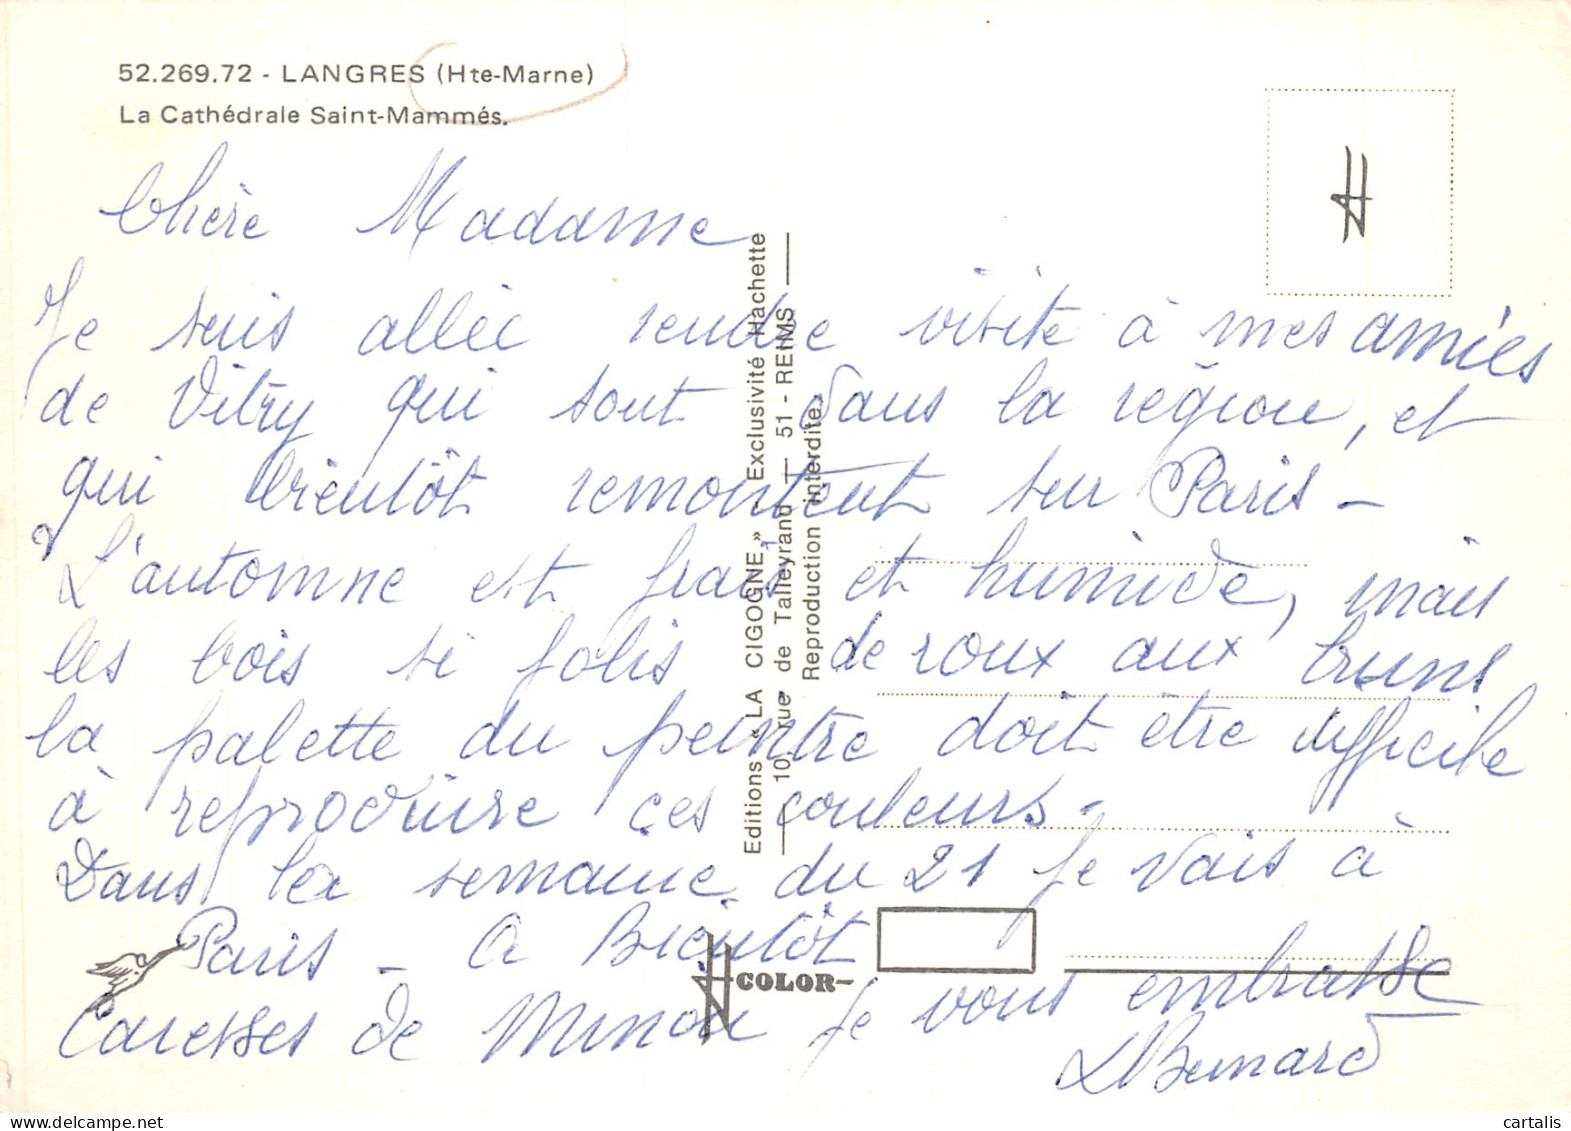 52.269.72 - LANGRES (Hte-Marne)
La Cathédrale Saint-Mammés.
Chère Madame
Je suis allée rendre visite à mes amies
de Vitry qui sont dans la région, et
qui bientôt remontent sur Paris -
L'automne est frais et humide, mais
les bois si jolis de roux aux bruns
la palette du peintre doit être difficile
à reproduire ces couleurs -
Dans la semaine du 21 je vais à
Paris - A Bientôt
Caresses de Minou je vous embrasse
Editions « LA CIGOGNE » - Exclusivité Hachette
10, rue de Talleyrand — 51 - REIMS
Reproduction interdite.
COLOR
cartalis